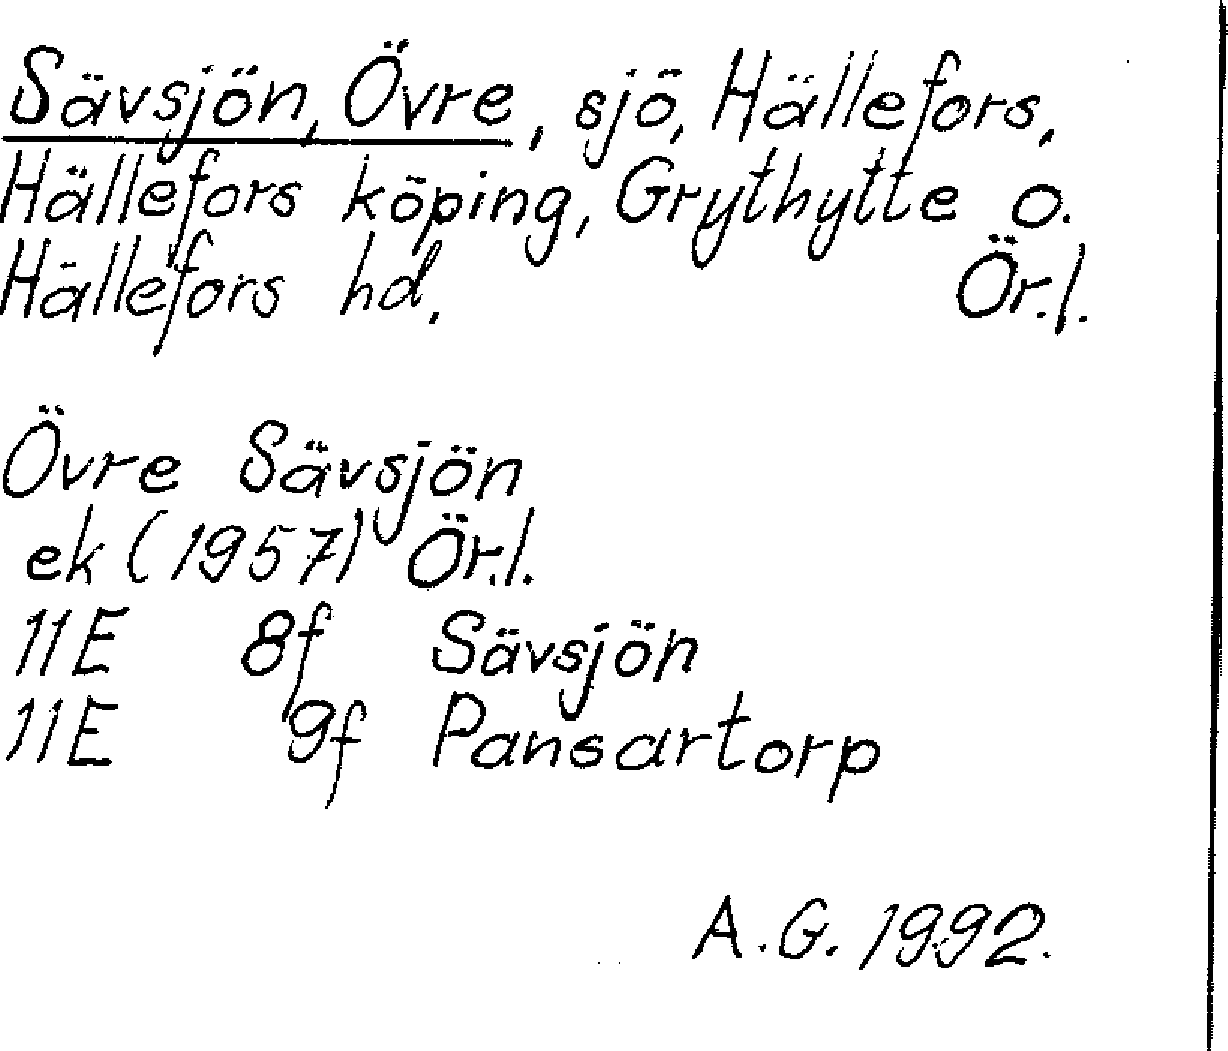 Sävsjön, Övre, sjö, Hällefors,
Hällefors köping, Grythytte o.
Hällefors hd. Ör.l.
Övre Sävsjön
ek (1957) Ör.l.
11E 8f Sävsjön
11E 9f Pansartorp
A.G. 1992.